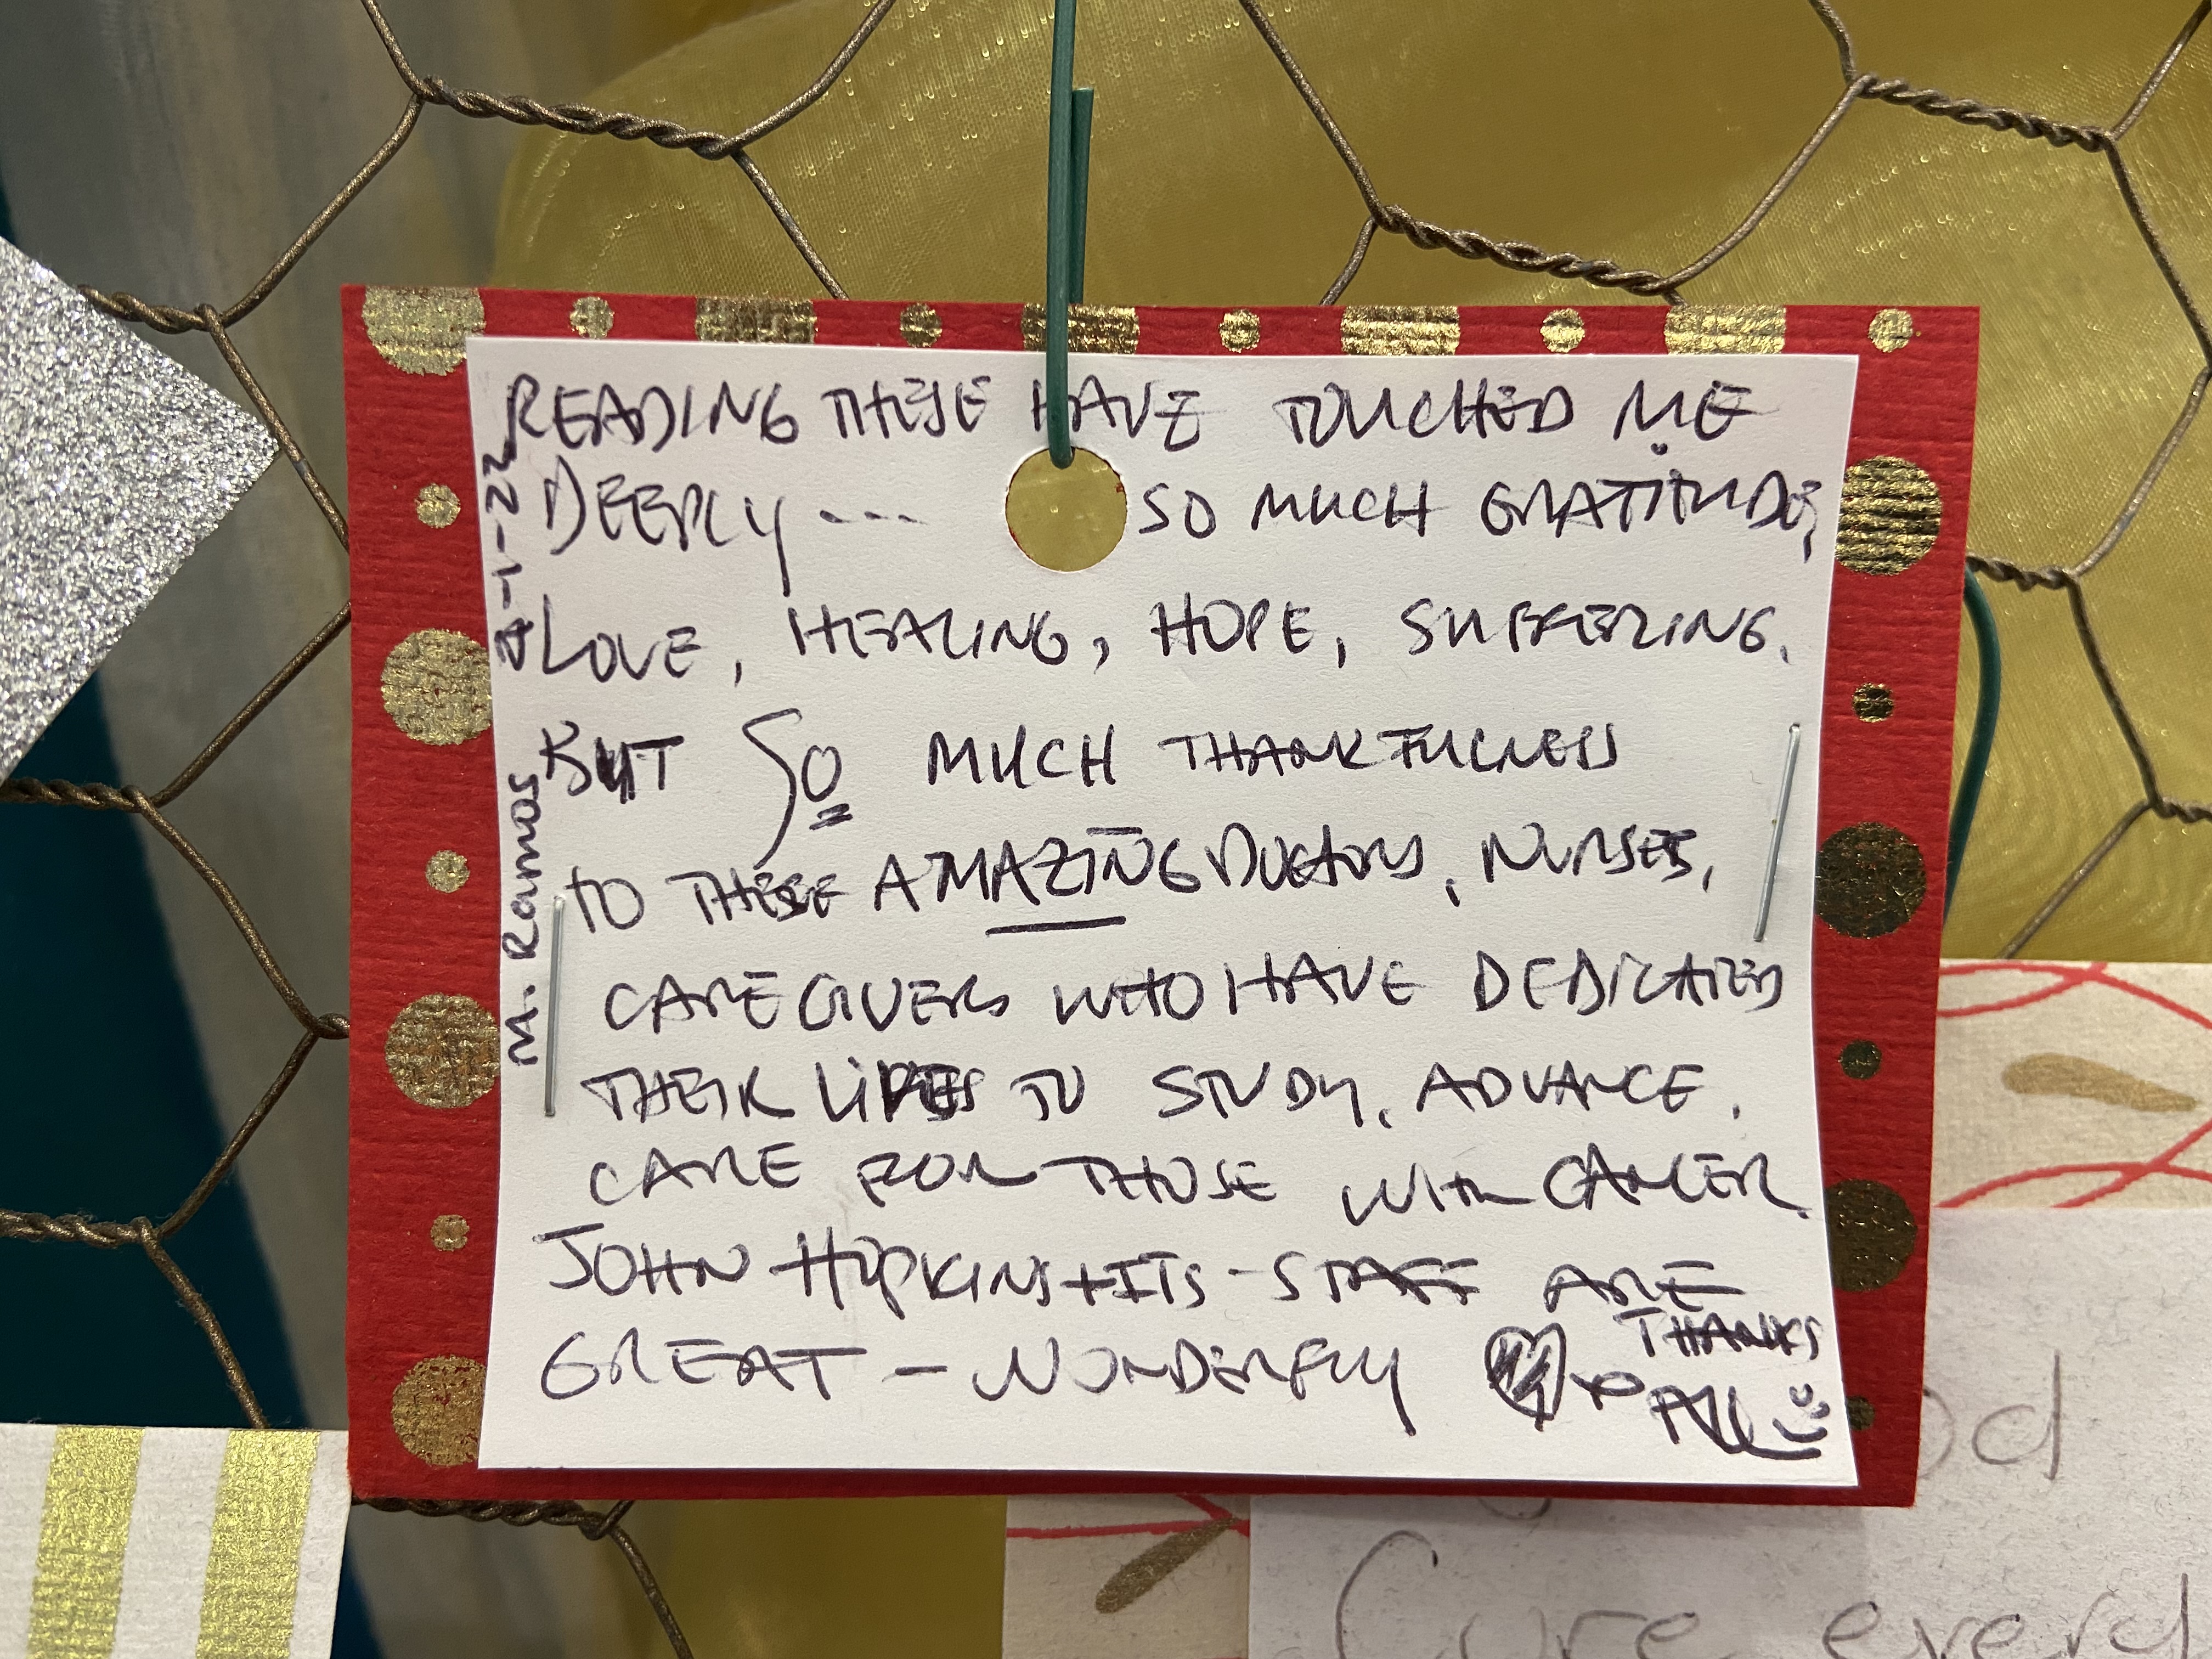 READING THESE HAVE TOUCHED ME
DEEPLY--- SO MUCH GRATITUDE,
LOVE, HEALING, HOPE, SUFFERING.
BUT SO MUCH THANKFULNESS
TO THESE AMAZING DOCTORS, NURSES,
CAREGIVERS WHO HAVE DEDICATED
THEIR LIVES TO STUDY, ADVANCE,
CARE FOR THOSE WITH CANCER.
JOHN HOPKINS + ITS STAFF ARE
GREAT - WONDERFLY
THANKS
TO ALL
M. Ramos
Cure